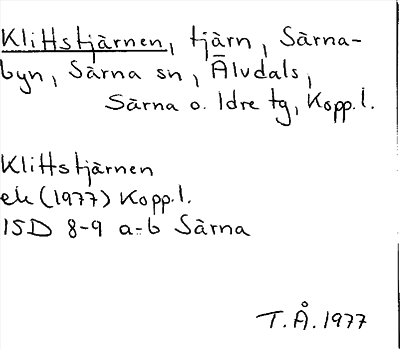 Klittstjärnen, tjärn, Särna-
byn, Särna sn, Älvdals,
Särna o. Idre tg, Kopp.l.
Klittstjärnen
ek (1977) Kopp.l.
15D 8-9 a-b Särna
T.Å.1977